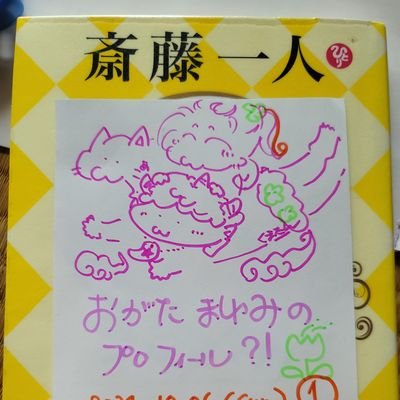 斎藤一人
ひとり
おがた まゆみの
プロフィール?!
①